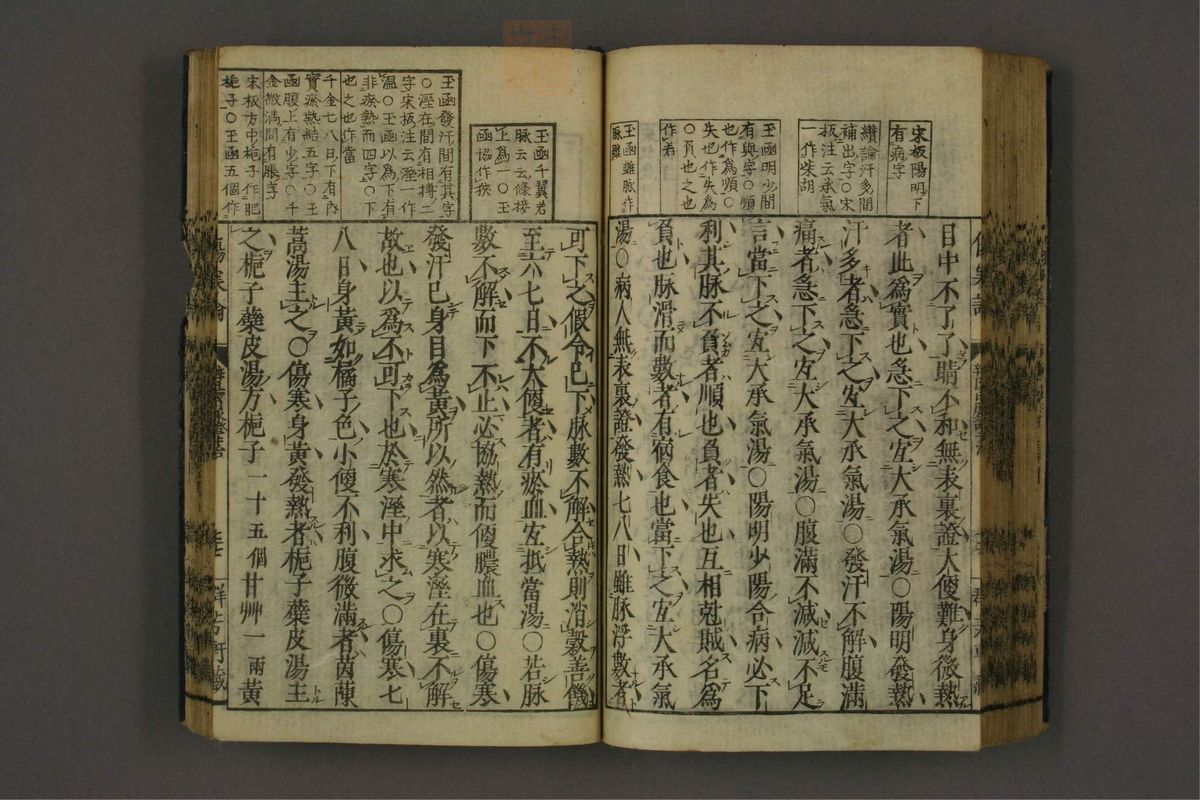 宋板陽明下
有病字
纉論汗多間
補出字○宋
板注云承氣
一作柴胡
玉函明少間
有與字○順
也作爲順○
失也作失爲
○負也之也
作者
玉函雖脉作
脉雖
目中不了了睛不和無表裏證大便難身微熱
者此爲實也急下之宜大承氣湯○陽明發熱
汗多者急下之宜大承氣湯○發汗不解腹滿
痛者急下之宜大承氣湯○腹滿不減減不足
言當下之宜大承氣湯○陽明少陽合病必下
利其脉不負者順也負者失也互相尅賊名爲
負也脉滑而數者有宿食也當下之宜大承氣
湯○病人無表裏證發熱七八日雖脉浮數者
玉函千翼若
脉云云條接
上爲一○玉
函協作挾
玉函發汗間有其字
○溼在間有相摶二
字宋板注云溼一作
温○玉函以爲下有
非瘀熱而四字○下
也之也作當
千金七八日下有內
實瘀熱結五字○玉
函腹上有少字○千
金微滿間有脹字
宋板方中梔子作肥
梔子○玉函五個作
可下之假令已下脉數不解合熱則消穀善饑
至六七日不大便者有瘀血宜抵當湯○若脉
數不解而下不止必協熱而便膿血也○傷寒
發汗已身目爲黄所以然者以寒溼在裏不解
故也以爲不可下也於寒溼中求之○傷寒七
八日身黄如橘子色小便不利腹微滿者茵蔯
蒿湯主之○傷寒身黄發熱者梔子蘗皮湯主
之梔子蘗皮湯方梔子一十五個甘艸一兩黄
傷寒論